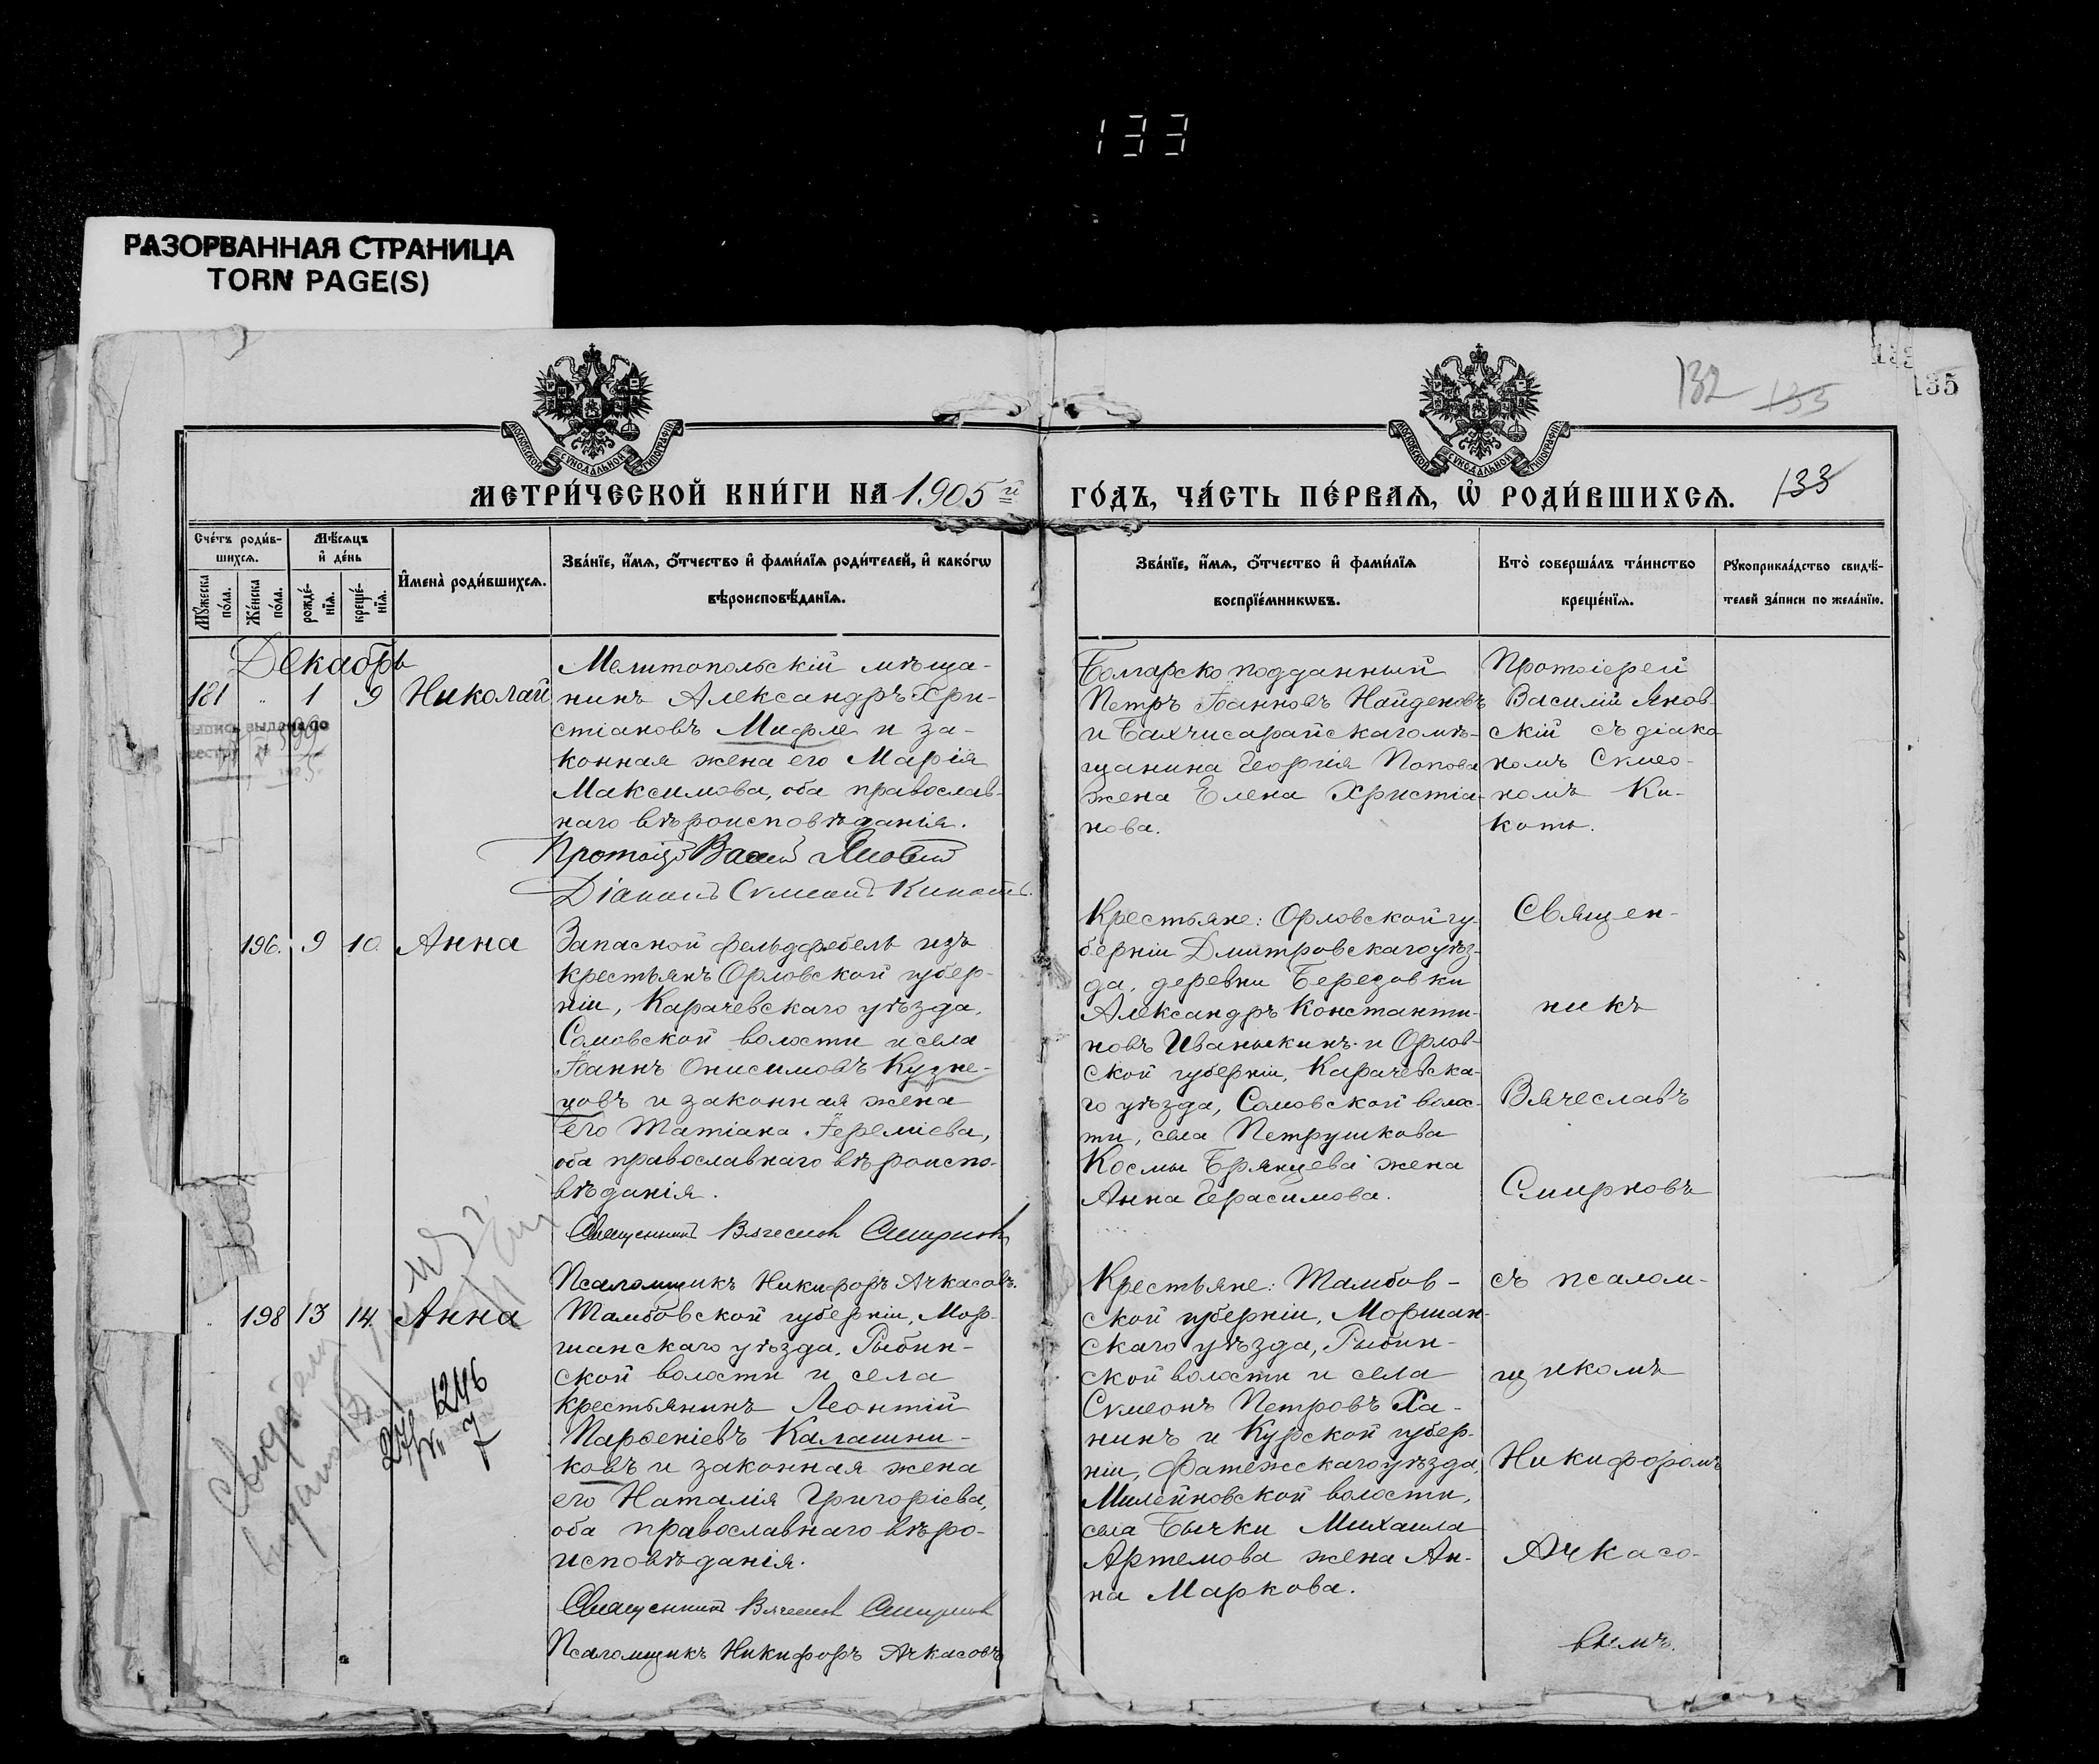 133
РАЗОРВАННАЯ СТРАНИЦА
TORN PAGE(S)
132 135
135
133
МЕТРИ́ЧЕСКОЙ КНИ́ГИ НА 1905й
ГО́ДЪ, ЧА́СТЬ ПЕ́РВАѦ, Ѡ РОДИ́ВШИХСѦ.
МОСКОВСКОЙ СѴНОДАЛЬНОЙ ТИПОГРАФІИ
МОСКОВСКОЙ СѴНОДАЛЬНОЙ ТИПОГРАФІИ
Сче́тъ роди́в-
шихсѧ.
Мꙋжеска по́ла.
Же́нска по́ла.
Мѣ́сѧцъ
и де́нь
рожде́-
нїѧ.
креще́-
нїѧ.
Имена̀ роди́вшихсѧ.
Зва́нїе, и́мѧ, о́тчество и фами́лїѧ роди́телей, и како́гѡ
вѣроисповѣ́данїѧ.
Зва́нїе, и́мѧ, о́тчество и фами́лїѧ
воспрїе́мникѡвъ.
Кто̀ соверша́лъ та́инство
креще́нїѧ.
Рꙋкоприкла́дство свидѣ́-
телей за́писи по жела́нїю.
Декабрь
181 " 1 9 Николай
Мелитопольскій мѣща-
нинъ Александръ Хри-
стіановъ Мифле и за-
конная жена его Марія
Максимова, оба православ-
наго вѣроисповѣданія.
Діаконъ Сѵмеонъ Кикоть.
Болгарско подданный
Петръ Іоанновъ Найденовъ
и Бахчисарайскаго мѣ-
щанина Георгія Попова
жена Елена Христіа-
нова.
Протоіерей
Василій Янов-
скій съ діако-
номъ Сѵмео-
номъ Ки-
коть.
196. 9 10. Анна
Запасной фельдфебель изъ
крестьянъ Орловской губер-
ніи, Карачевскаго уѣзда,
Сомовской волости и села
Іоаннъ Онисимовъ Кузне-
цовъ и законная жена
его Татіана Іереміева,
оба православнаго вѣроиспо-
вѣданія.
Священникъ Вячеслав Смирнов
Псаломщикъ Никифоръ Ачкасовъ.
Крестьяне: Орловской гу-
берніи Дмитровскаго уѣз-
да, деревни Березовки
Александръ Константи-
новъ Иваныкинъ и Орлов-
ской губерніи, Карачевска-
го уѣзда, Сомовской волос-
ти, села Петрушкова
Космы Брянцева жена
Анна Герасимова.
Священ-
никъ
Вячеславъ
Смирновъ
198 13 14. Анна
Тамбовской губерніи, Мор-
шанскаго уѣзда, Рыбин-
ской волости и села
крестьянинъ Леонтій
Парѳеніевъ Калашни-
ковъ и законная жена
его Наталія Григоріева,
оба православнаго вѣро-
исповѣданія.
Священникъ Вячеслав Смирнов
Псаломщикъ Никифоръ Ачкасовъ
Крестьяне: Тамбов-
ской губерніи, Моршан-
скаго уѣзда, Рыбин-
ской волости и села
Сѵмеонъ Петровъ Ха-
нинъ и Курской губер-
ніи, Фатежскаго уѣзда,
Милейновской волости,
села Бычки Михаила
Артемова жена Ан-
на Маркова.
съ псалом-
щикомъ
Никифоромъ
Ачкасо-
вымъ.